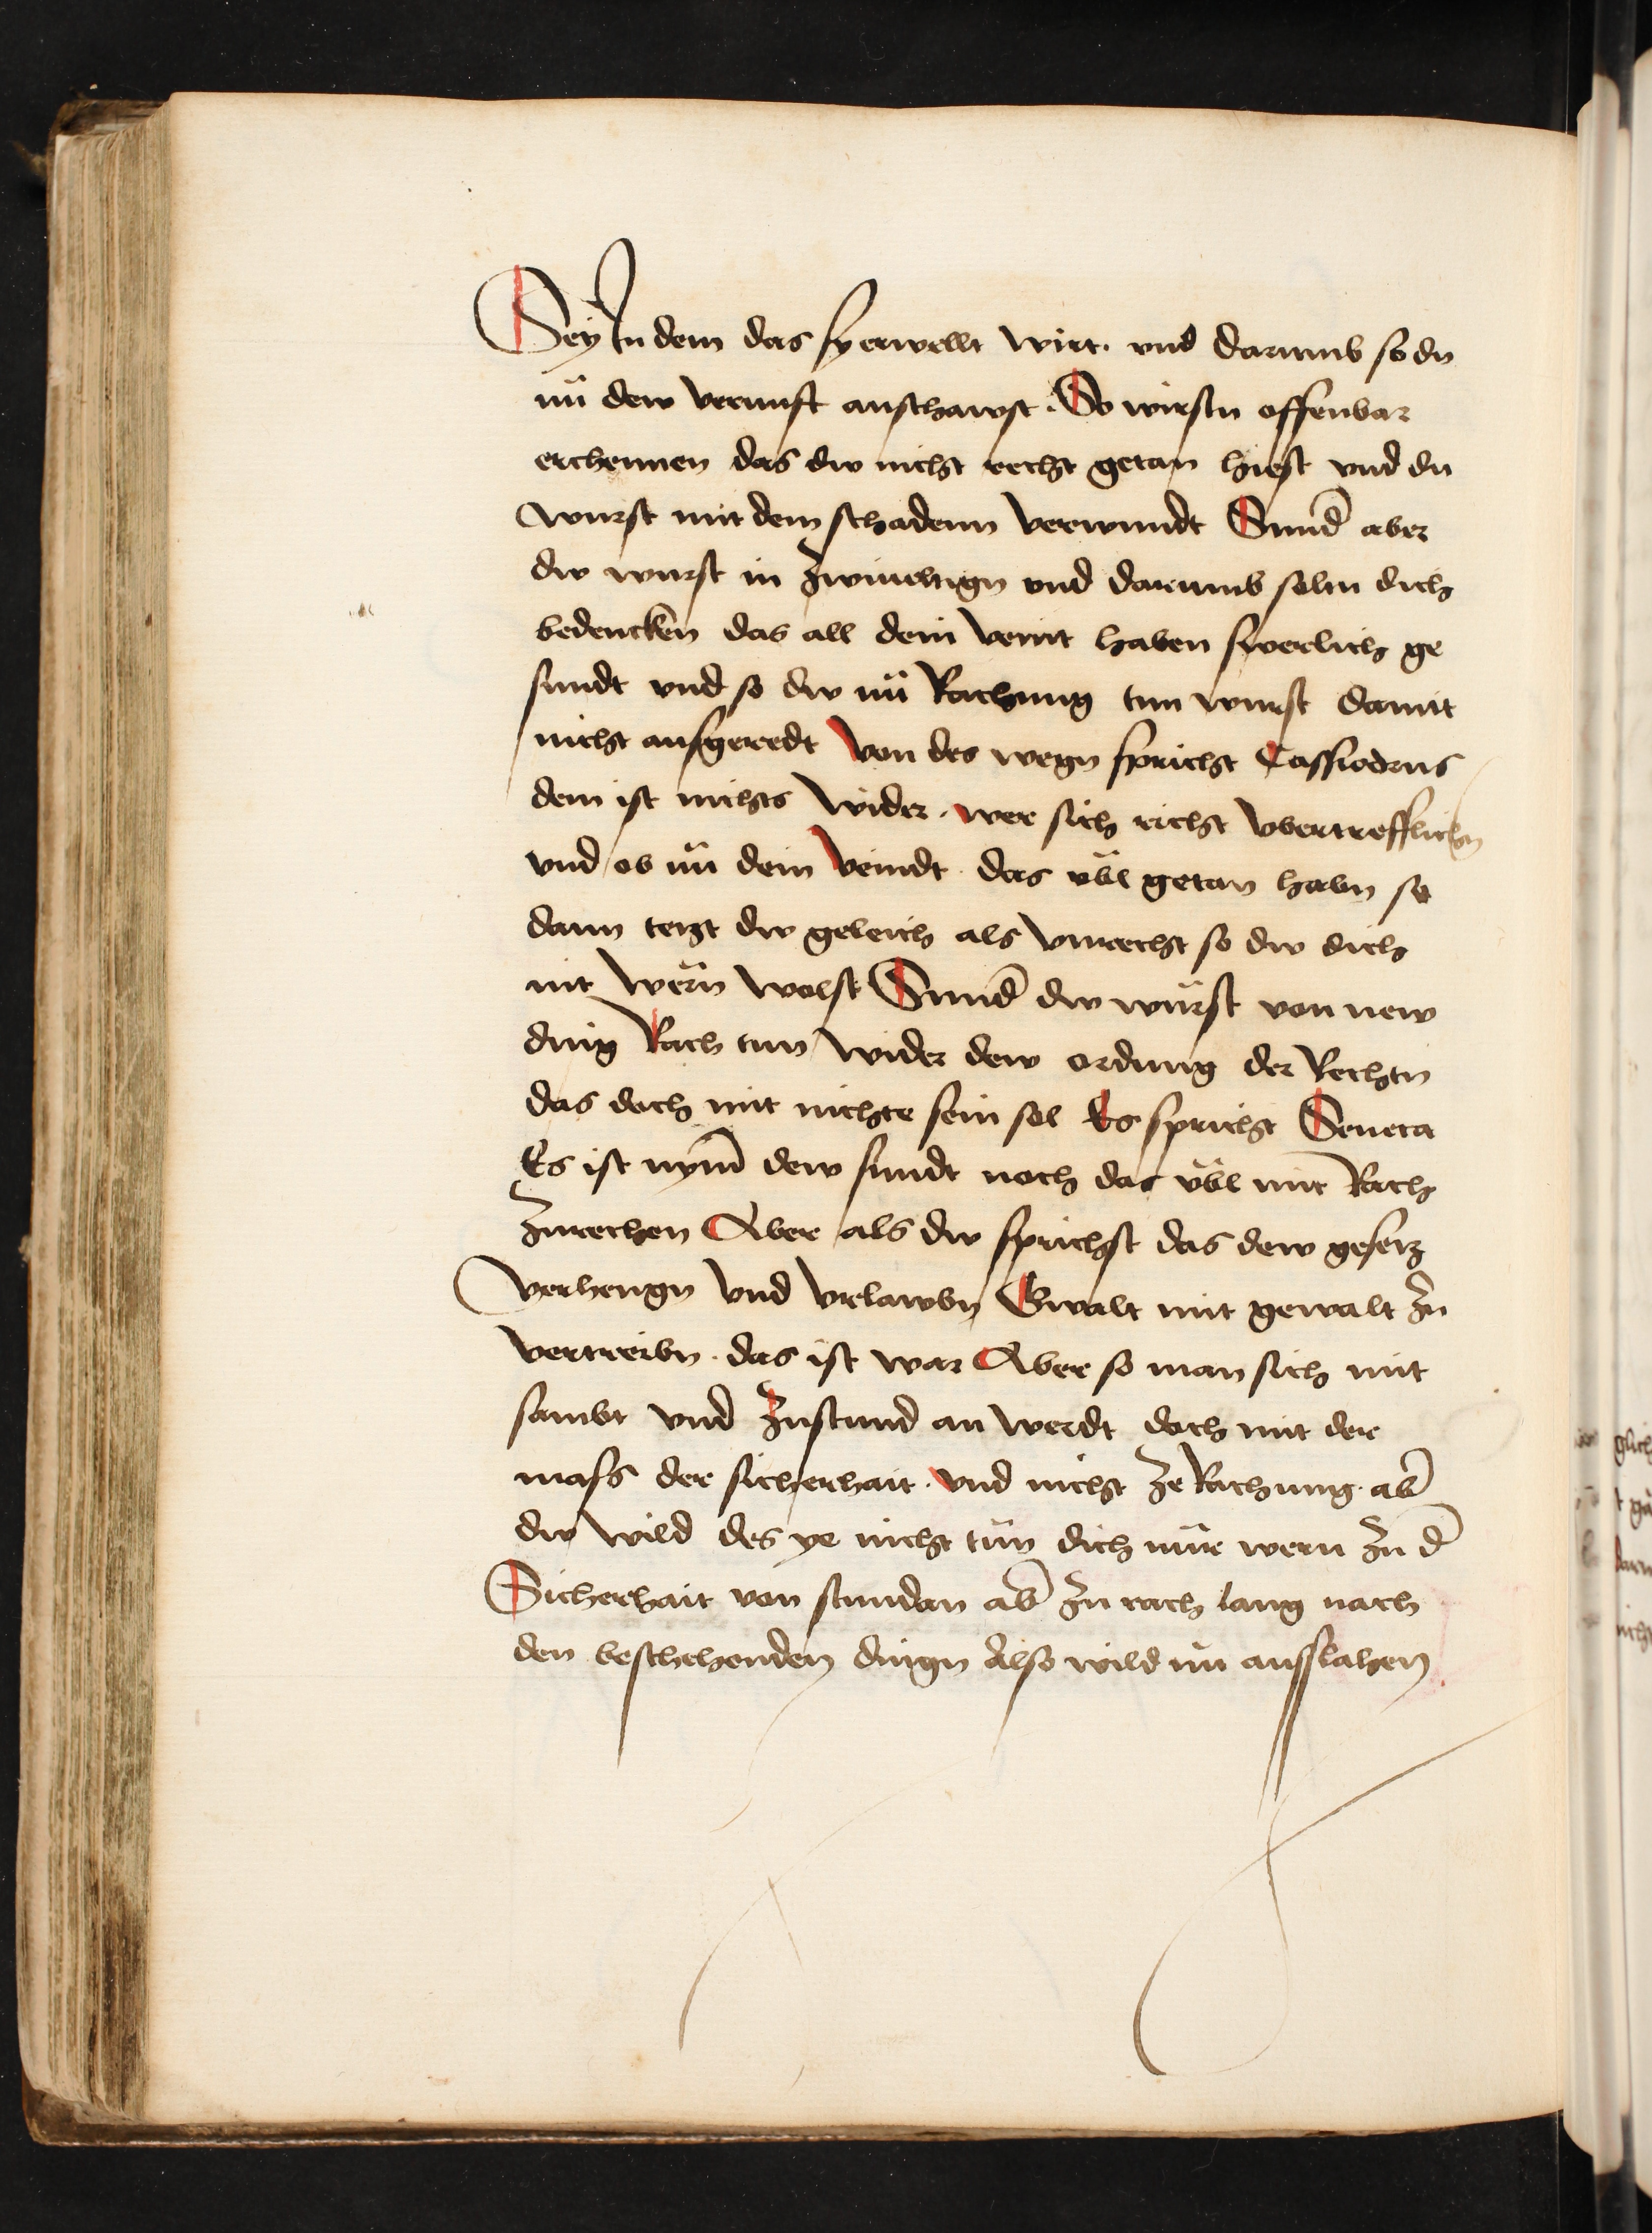 Sey In dem das sy erwellt wirt. vnd darumb so du
nü dew vernuft anschawst. So wirstu offenbar
erchennen das dw nicht recht getan hiest vnd du
wurst mit dem schadenn verwundt Sund̄ aber
dw wurst in zwiueltign vnd darumb soltu dich
bedencken das all dein veint haben swerlich ge
sundt vnd so dw nü Rachung tun wurst damit
nicht ausgeredt von des wegn spricht Cassiodrus
dem ist nichts wider. wer sich richt vbertrefflichn
vnd ob nü dein veindt das übl getan habn so
dann tetzt dw geleich als vnrecht so dw dich
nit wern wolst Sund̄ dw würst von new
ding Rach tun wider dew ordnung der Rechtn
das doch mit nichte sein sol Es spricht Seneca
Es ist nym̄ dew sundt noch das übl mit Rach
zurechen Aber als dw sprichst das dew gesetz
verhengn vnd vrlawbn Gwalt mit gewalt zu
vertreibn. das ist war Aber so man sich mit
sambt vnd zustund an werdt doch mit der
mass der sicherhait. vnd nicht ze Rachung. ab̄
dw wild des ye nicht tün dich nür wern zu d̄
Sicherhait von stundan ab̄ zu rach lang nach
den beschehenden dingn Also wild nü ausslahen